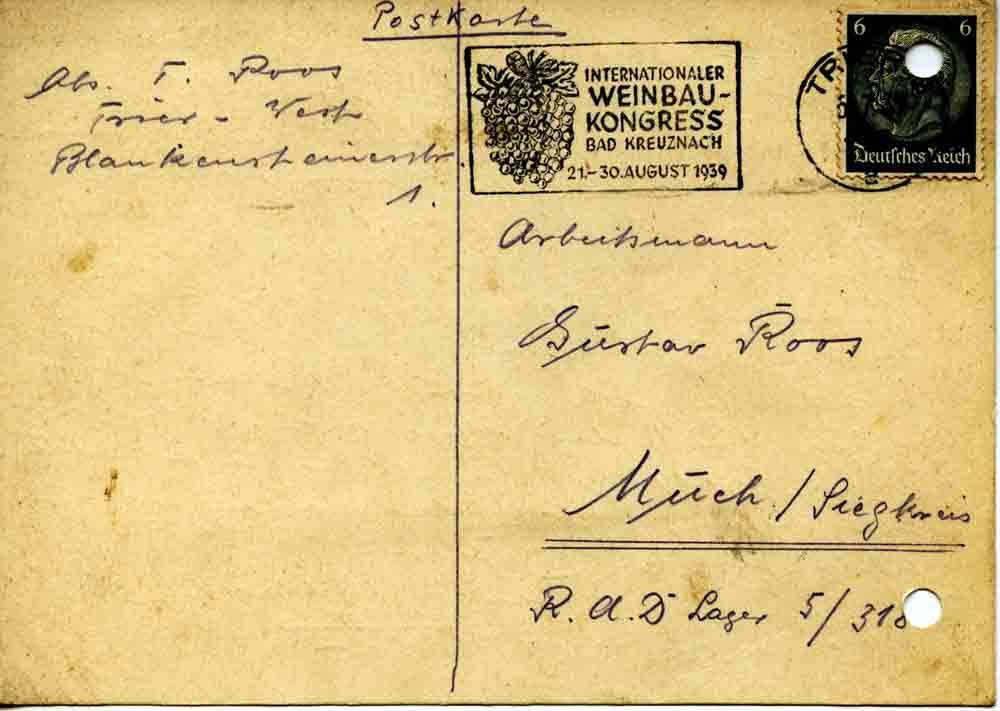 Postkarte
Abs. T. Roos
Trier - West
Blankensteinerstr.
1.
INTERNATIONALER
WEINBAU-
KONGRESS
BAD KREUZNACH
21.-30. AUGUST 1939
TR
6 6
Deutsches Reich
Arbeitsmann
Gustav Roos
Much / Siegkreis
R. A. D Lager 5/318